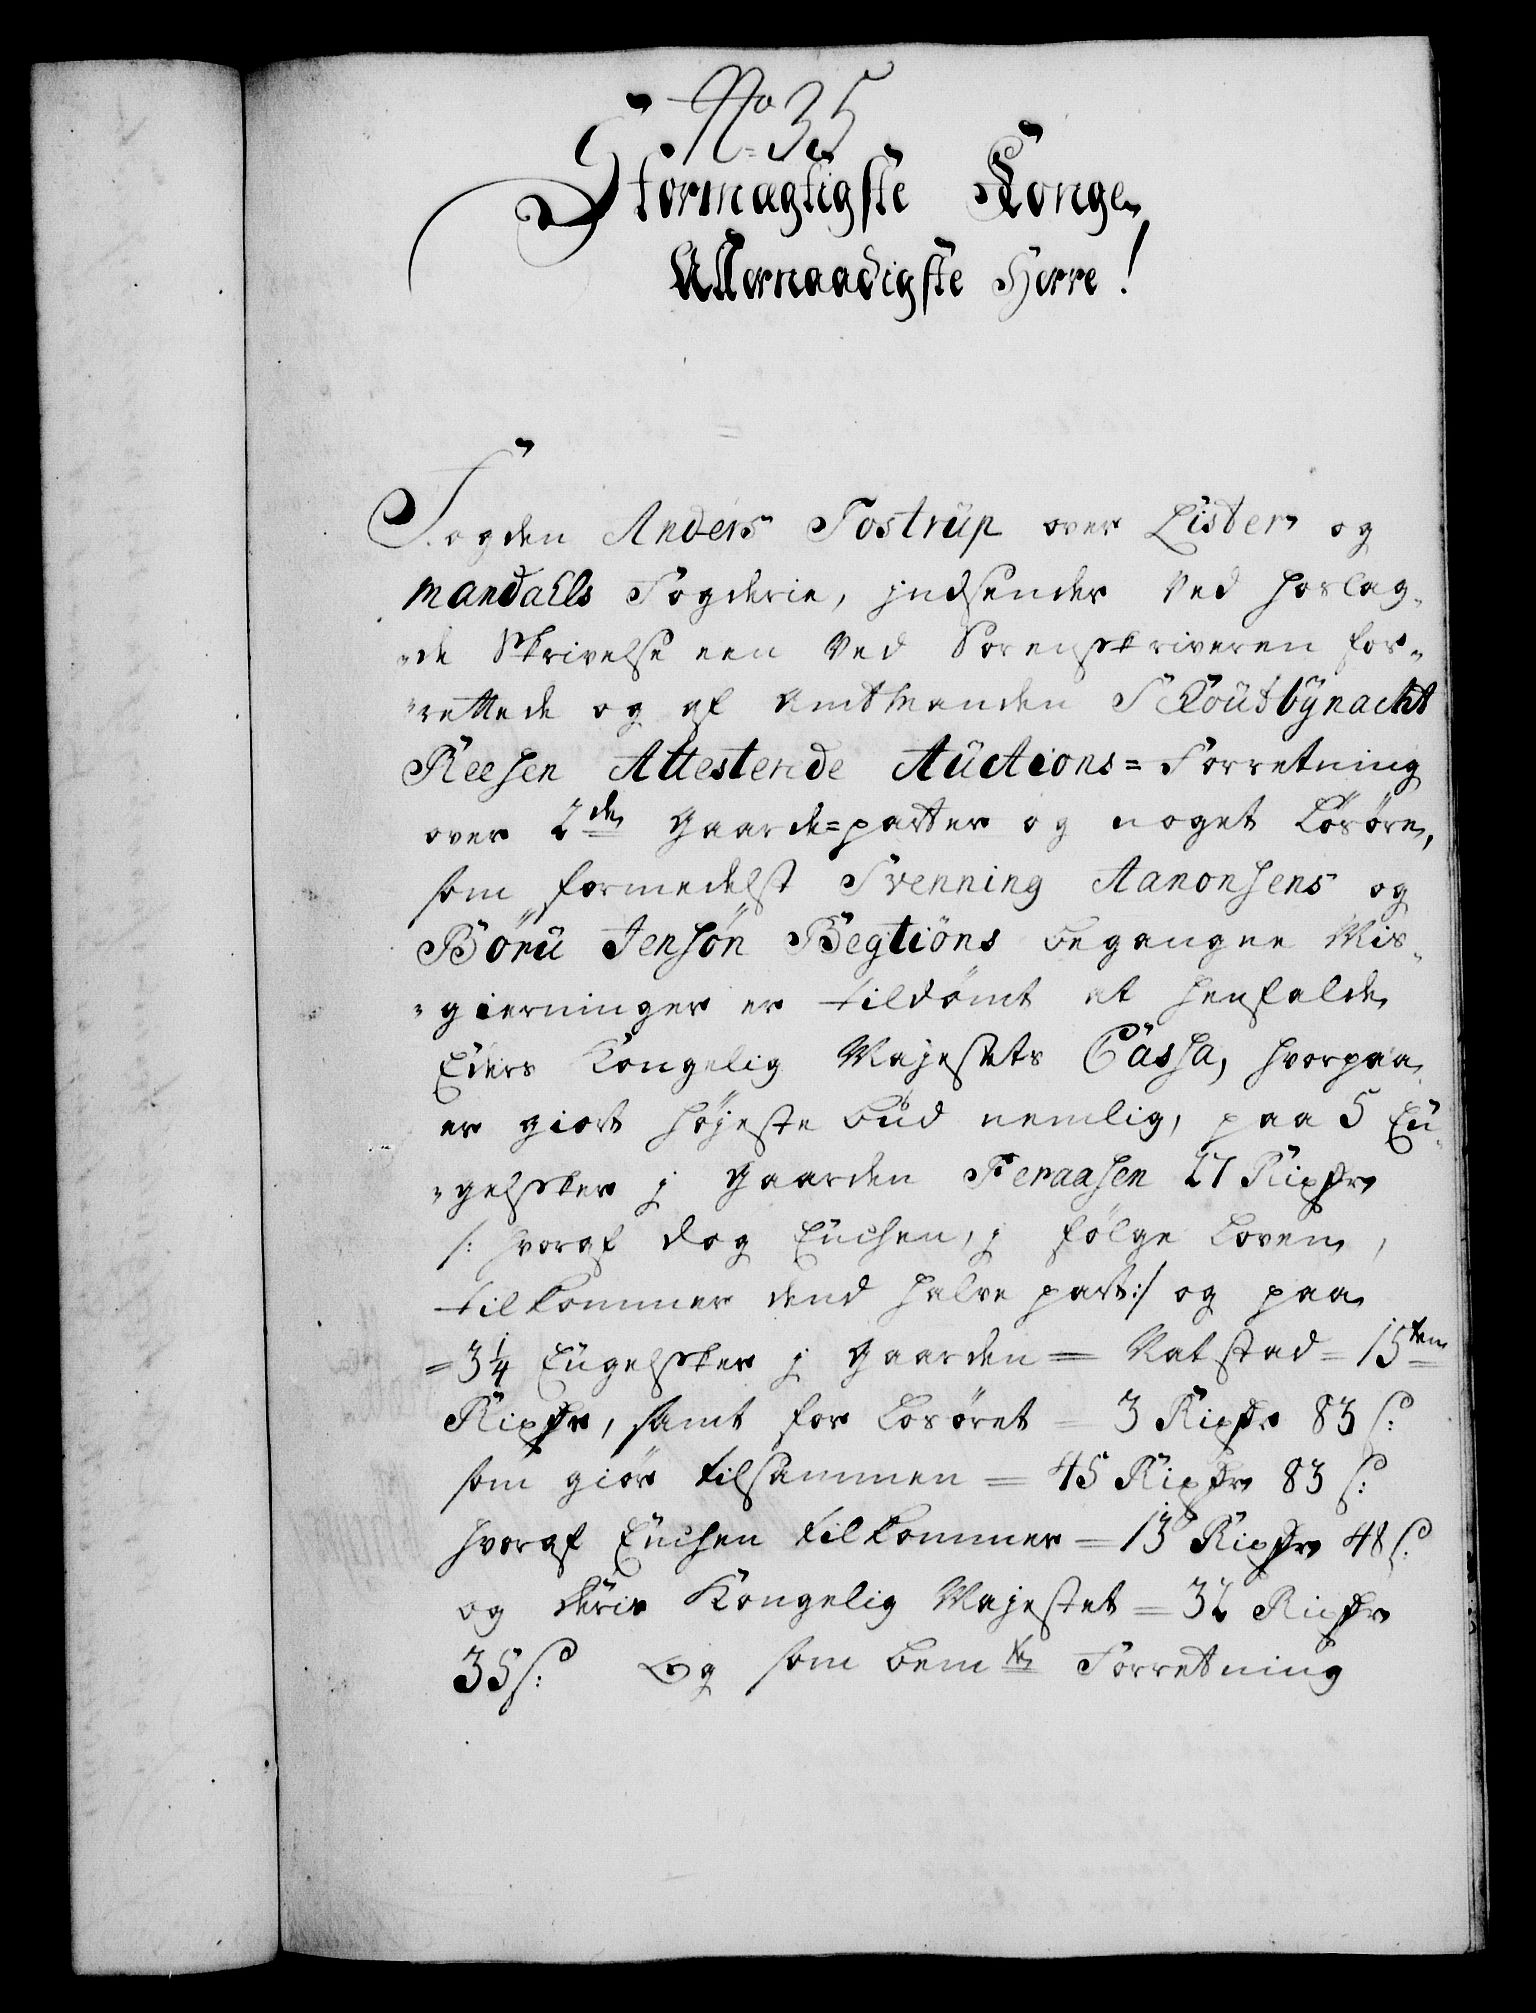 No 35
Stormægtigste Konge
Allernaadigste Herre!
Fogden Anders Tostrüp over Lister og
Mandahls Fogderie, jndsender ved hoslag-
-de Skrivelse een ved Sorenskriveren for-
-rettede og af Amtmanden Schoütbÿnacht
Reesen Attesterede Auctions= Forretning
over 2de gaarde=parter og noget Løsøre,
som formedelst Svenning Aanonsens og
Börü Jensøn Begtiöns begangne Mis-
-gierninger er tildømt at henfalde
Eders Kongelig Majestets Cassa, hvorpaa
er giort høyeste büd nemlig, paa 5 En-
-gelsker j gaarden Feraasen 27 Rixdr
/: hvoraf dog Enchen, j følge Loven,
tilkommer dend halve part:/ og paa
=3 1/4 Engelsker j gaarden = Vatstad = 15ten
Rixdr, samt for Løsøret = 3 Rixdr 83 s:
som giør tilsammen = 45 Rixdr 83 s:
hvoraf Enchen tilkommer = 13 Rixdr 48 s:
og deris Kongelig Majestet = 32 Rixdr
35 s: Og som bemte Forretning